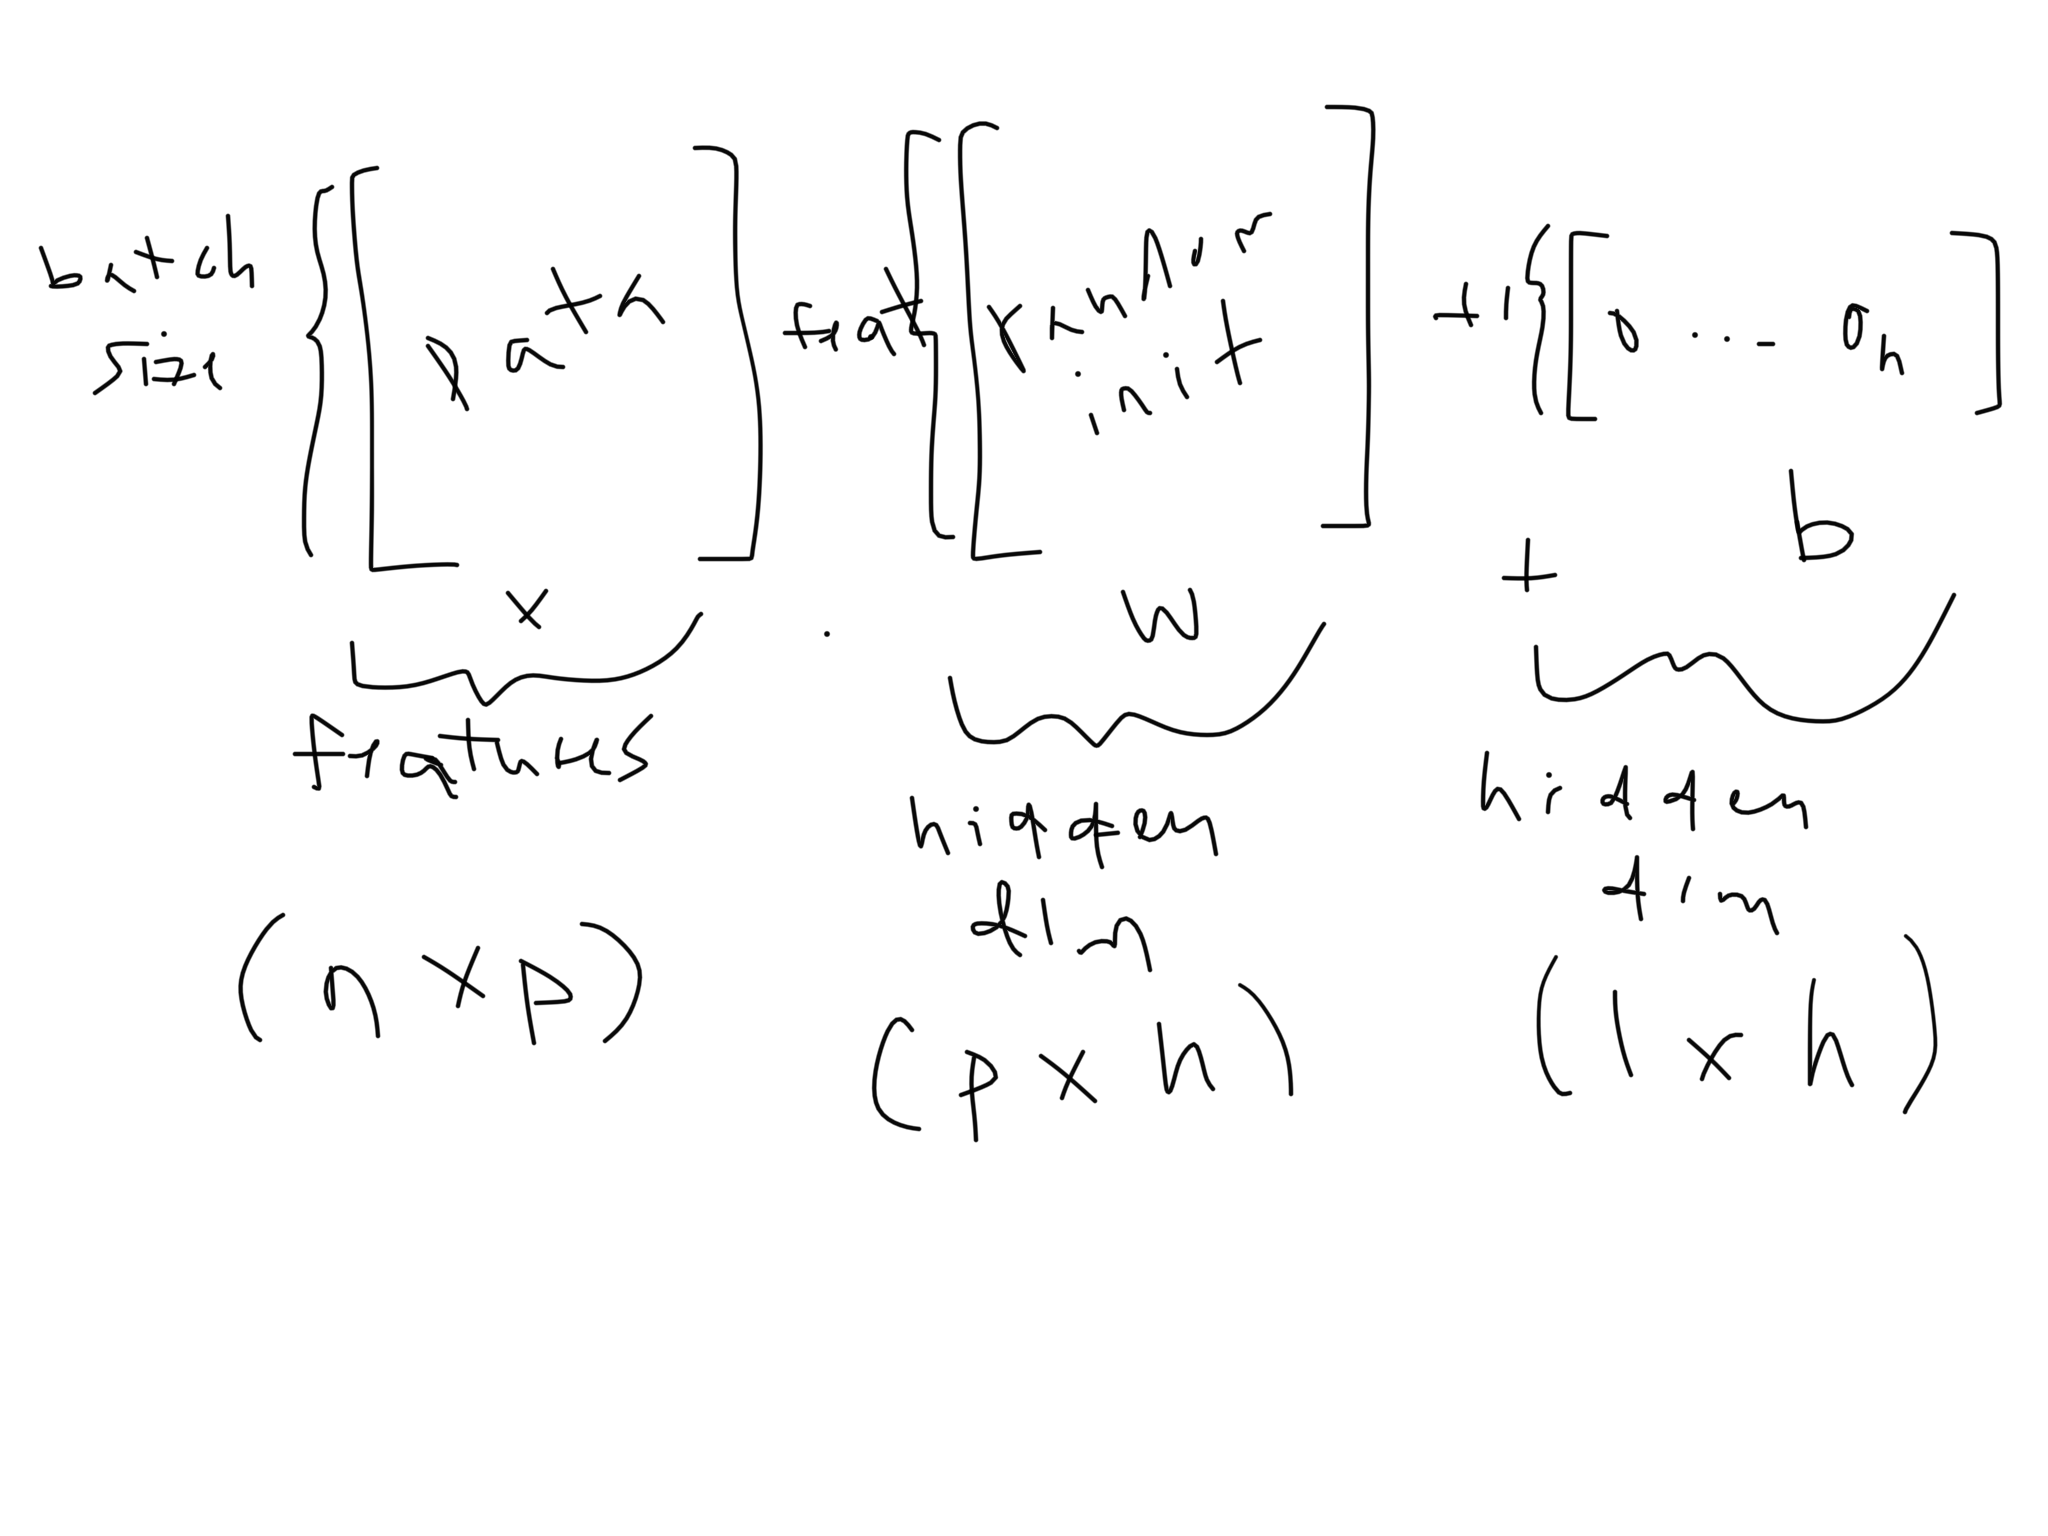 batch
size
path
feat
random
init
+ 1
0 ... 0h
x . w + b
features
hidden
dim
hidden
dim
(n x p)
(p x h)
(1 x h)